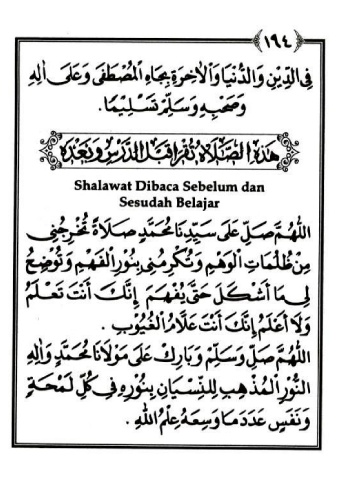 ١٩٤
فِى الدِّيْنِ وَالدُّنْيَا وَالْاٰخِرَةِ بِجَاهِ الْمُصْطَفَى وَعَلَى اٰلِهِ
وَصَحْبِهِ وَسَلِّمْ تَسْلِيْمًا.
هٰذِهِ الصَّلَاةُ تُقْرَأُ قَبْلَ الدَّرْسِ وَبَعْدَهُ
Shalawat Dibaca Sebelum dan
Sesudah Belajar
اَللّٰهُمَّ صَلِّ عَلَى سَيِّدِنَا مُحَمَّدٍ صَلَاةً تُخْرِجُنِي
مِنْ ظُلُمَاتِ الْوَهْمِ وَتُكْرِمُنِي بِنُوْرِ الْفَهْمِ وَتُوَضِّحُ
لِي مَا أَشْكَلَ حَتَّى يُفْهَمَ إِنَّكَ أَنْتَ تَعْلَمُ
وَلَا أَعْلَمُ إِنَّكَ أَنْتَ عَلَّامُ الْغُيُوْبِ.
اَللّٰهُمَّ صَلِّ وَسَلِّمْ وَبَارِكْ عَلَى مَوْلَانَا مُحَمَّدٍ وَاٰلِهِ
النُّوْرِ الْمُذْهِبِ لِلنِّسْيَانِ بِنُوْرِهِ فِي كُلِّ لَمْحَةٍ
وَنَفَسٍ عَدَدَ مَا وَسِعَهُ عِلْمُ اللّٰهِ.